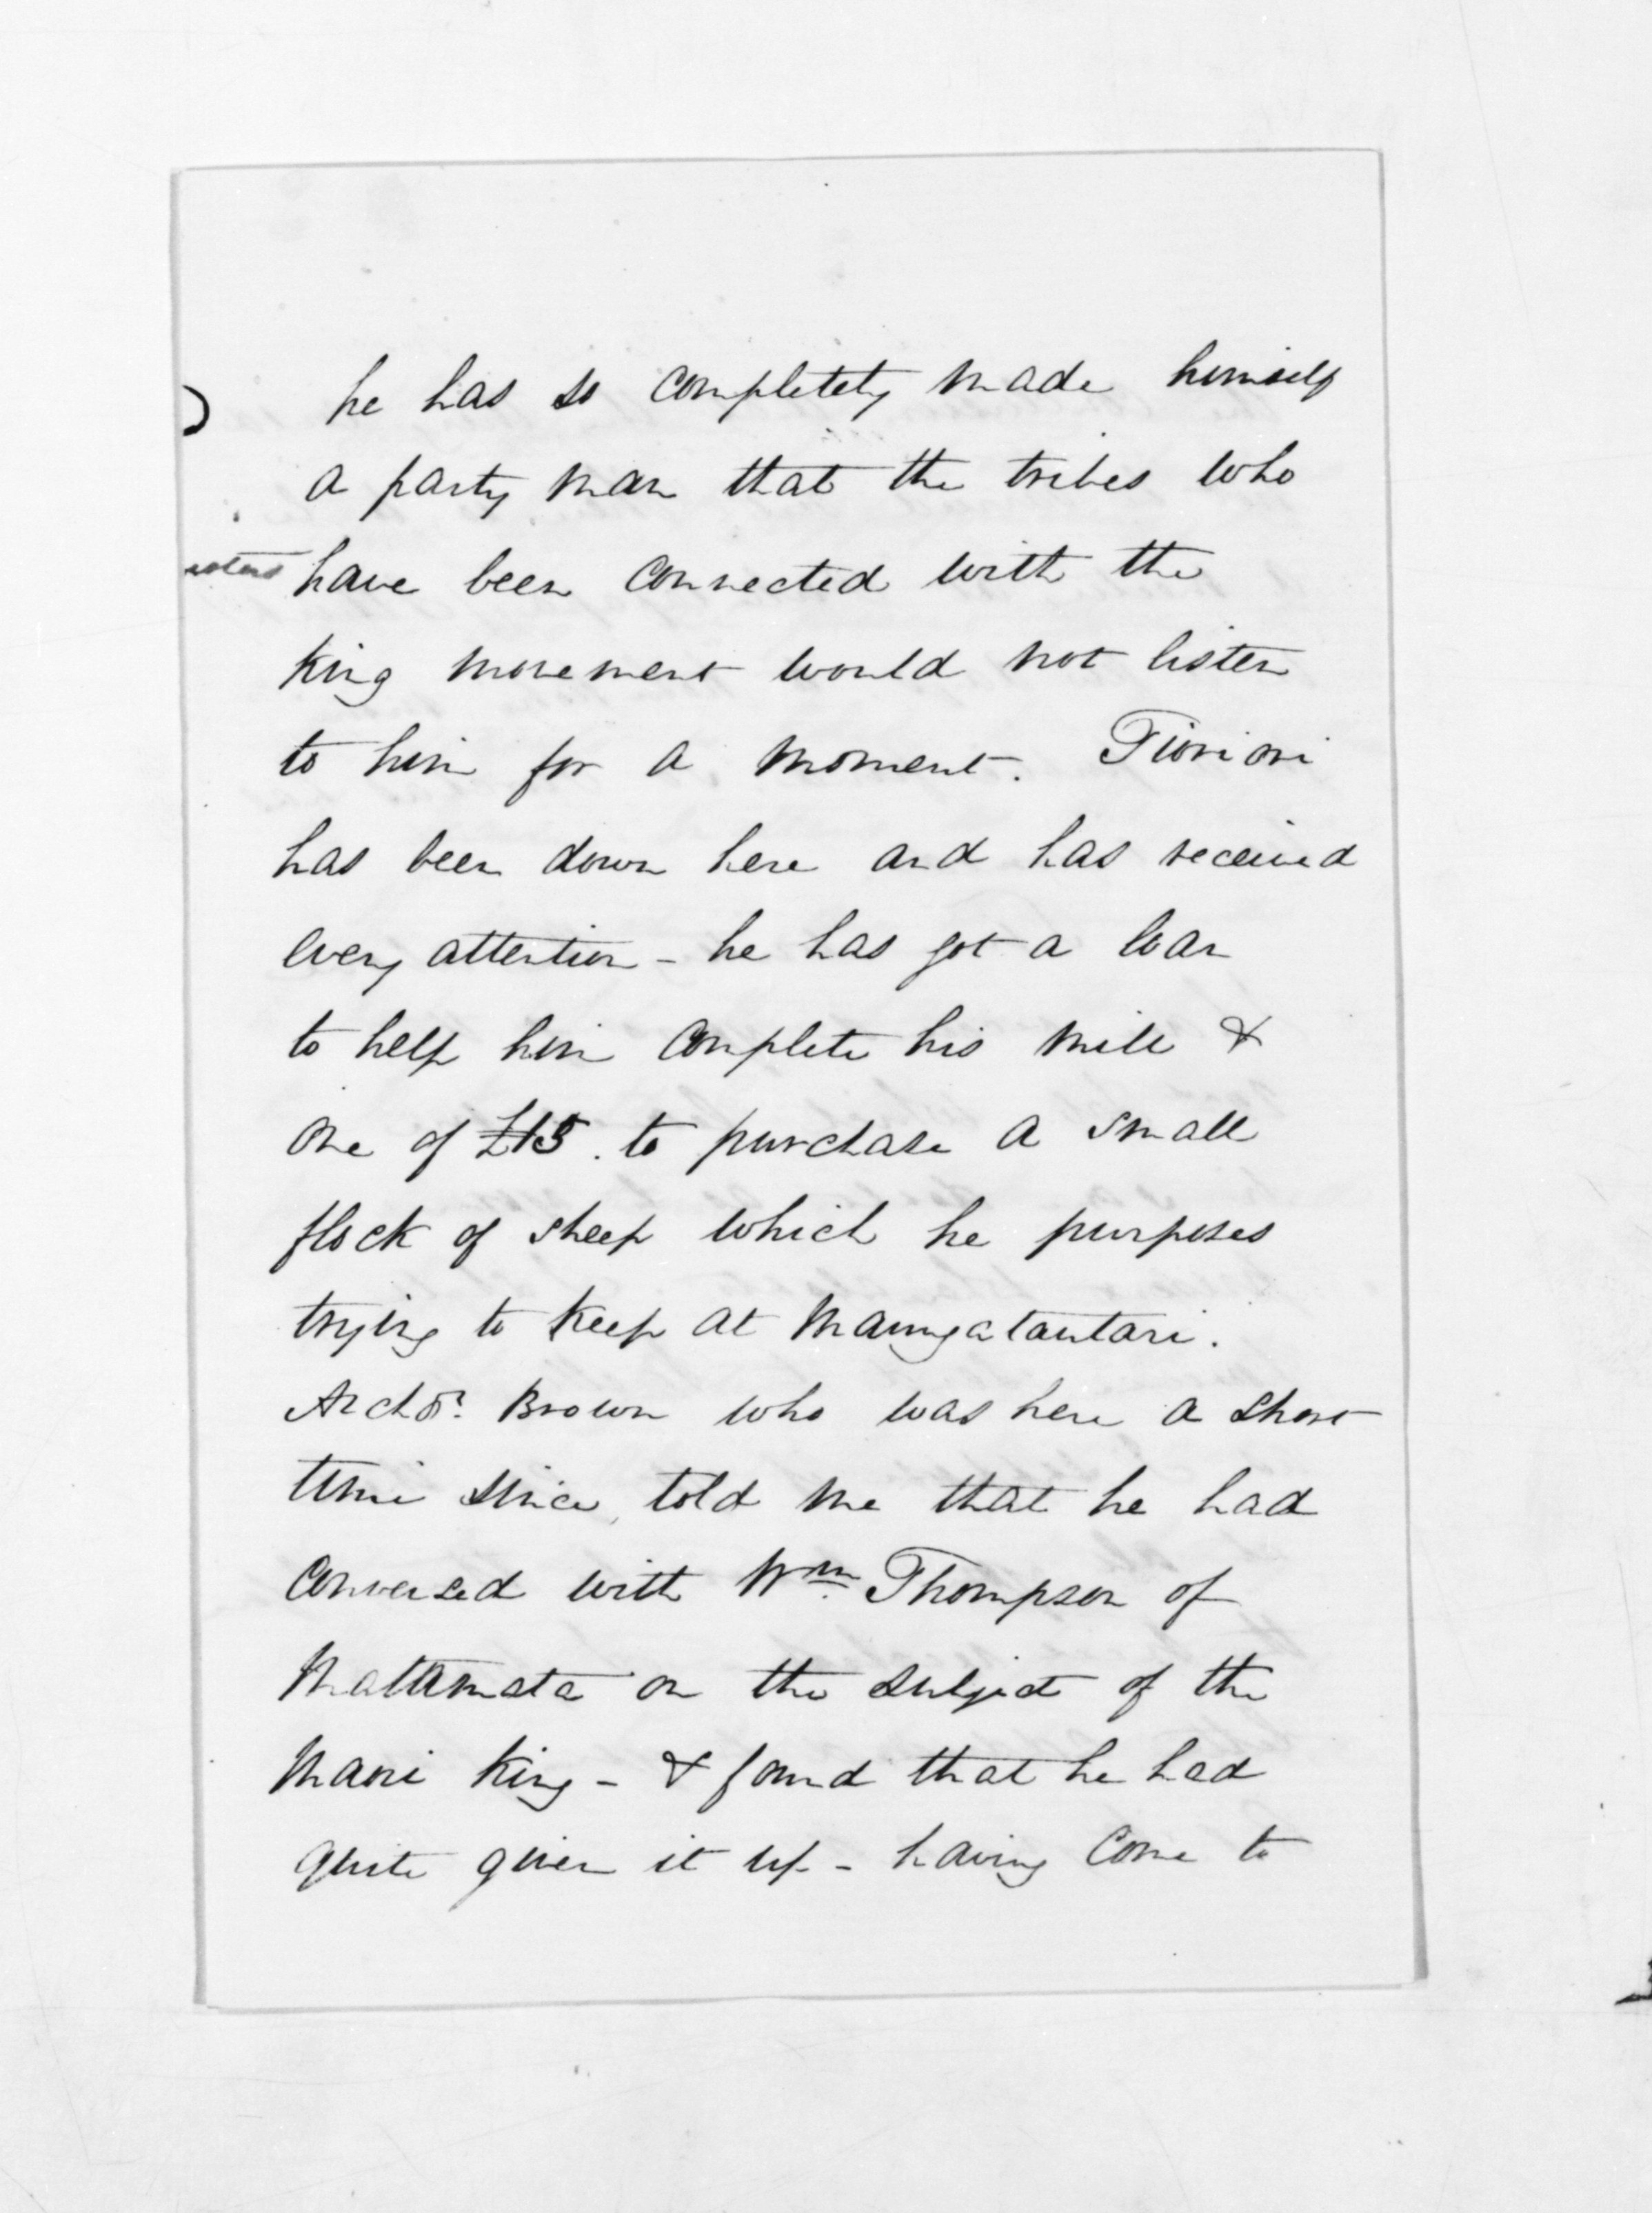 he has so completely made himself
a party man that the tribes who
have been connected with the
King movement would not listen
to him for a moment. Tioriori
has been down here and has received
every attention - he has got a loan
to help him complete his mill &
one of £15. to purchase a small
flock of sheep which he purposes
trying to keep at Maungatautari.
Archdn. Brown who was here a short
time since, told me that he had
conversed with Wm. Thompson of
Matamata on the subject of the
Maori King - & found that he had
quite given it up - having come to